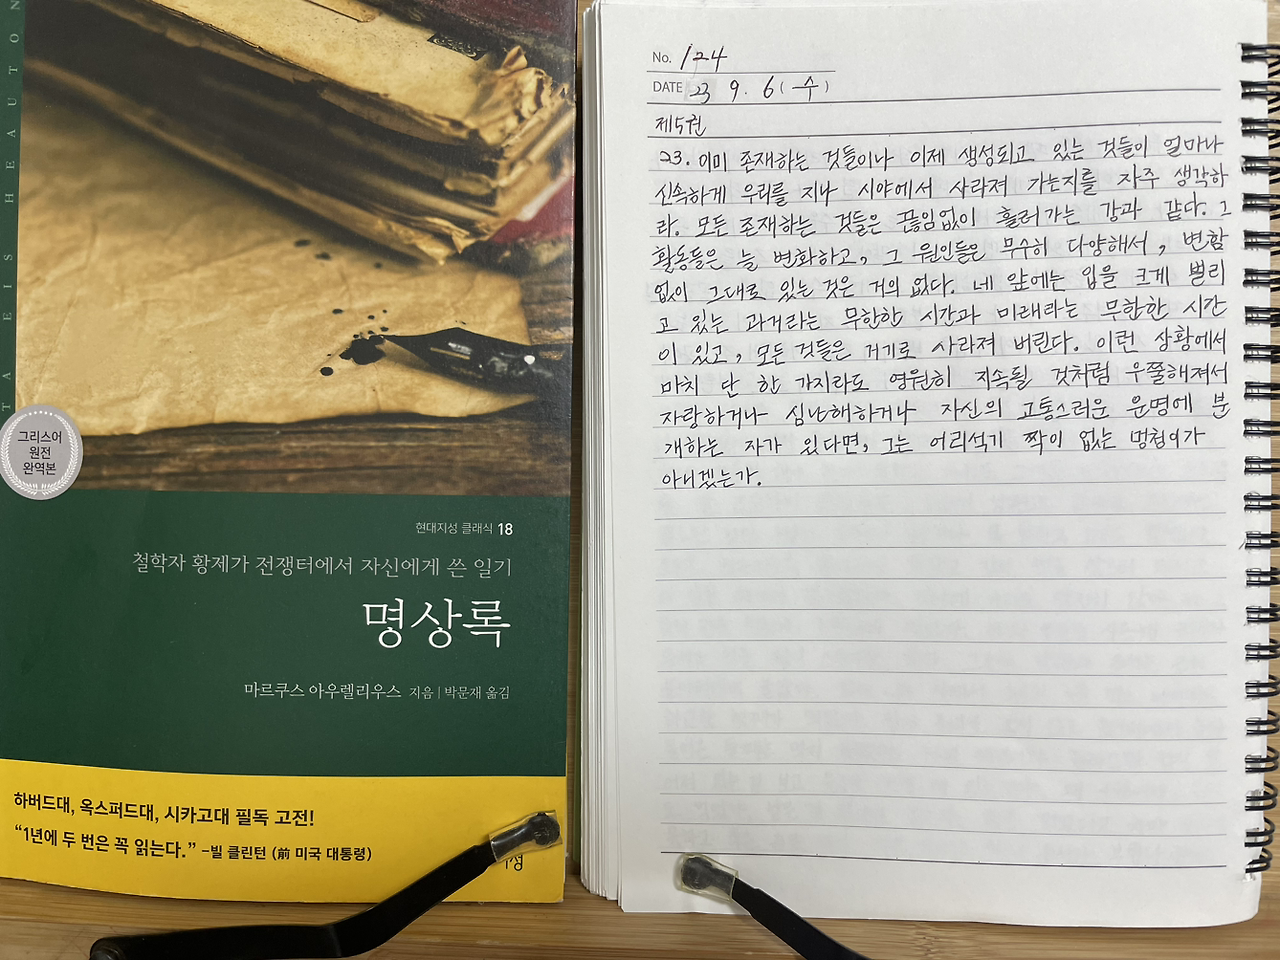 TA EIS HEAUTON
그리스어
원전
완역본
현대지성 클래식 18
철학자 황제가 전쟁터에서 자신에게 쓴 일기
명상록
마르쿠스 아우렐리우스 지음 | 박문재 옮김
하버드대, 옥스퍼드대, 시카고대 필독 고전!
“1년에 두 번은 꼭 읽는다.” –빌 클린턴 (前 미국 대통령)
No. 124
DATE 23 9. 6 (수)
제5권
23. 이미 존재하는 것들이나 이제 생성되고 있는 것들이 얼마나
신속하게 우리를 지나 시야에서 사라져 가는지를 자주 생각하
라. 모든 존재하는 것들은 끊임없이 흘러가는 강과 같다. 그
활동들은 늘 변화하고, 그 원인들은 무수히 다양해서, 변함
없이 그대로 있는 것은 거의 없다. 네 앞에는 입을 크게 벌리
고 있는 과거라는 무한한 시간과 미래라는 무한한 시간
이 있고, 모든 것들은 거기로 사라져 버린다. 이런 상황에서
마치 단 한 가지라도 영원히 지속될 것처럼 우쭐해져서
자랑하거나 심난해하거나 자신의 고통스러운 운명에 분
개하는 자가 있다면, 그는 어리석기 짝이 없는 멍청이가
아니겠는가.